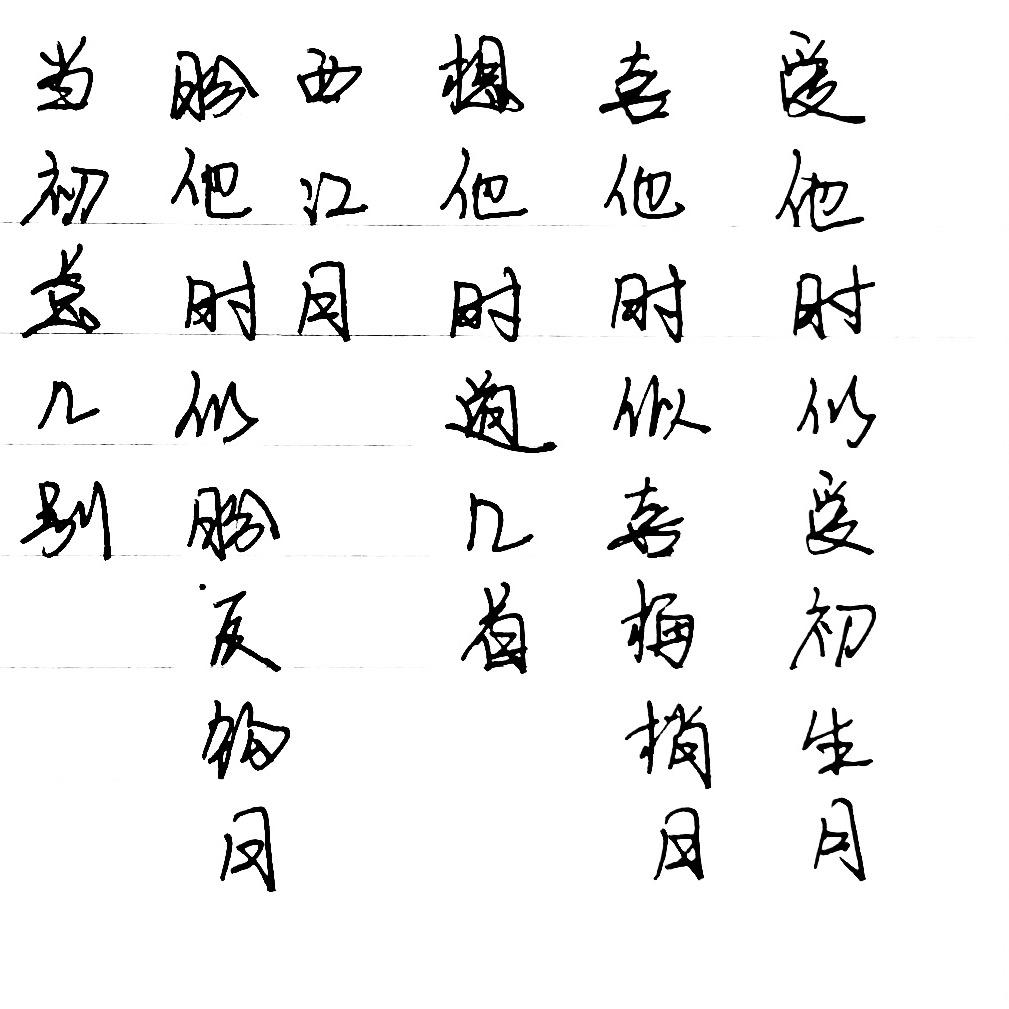 爱他时似爱初生月
喜他时似喜梅梢月
想他时道几首
西江月
盼他时似盼辰钩月
当初意几别